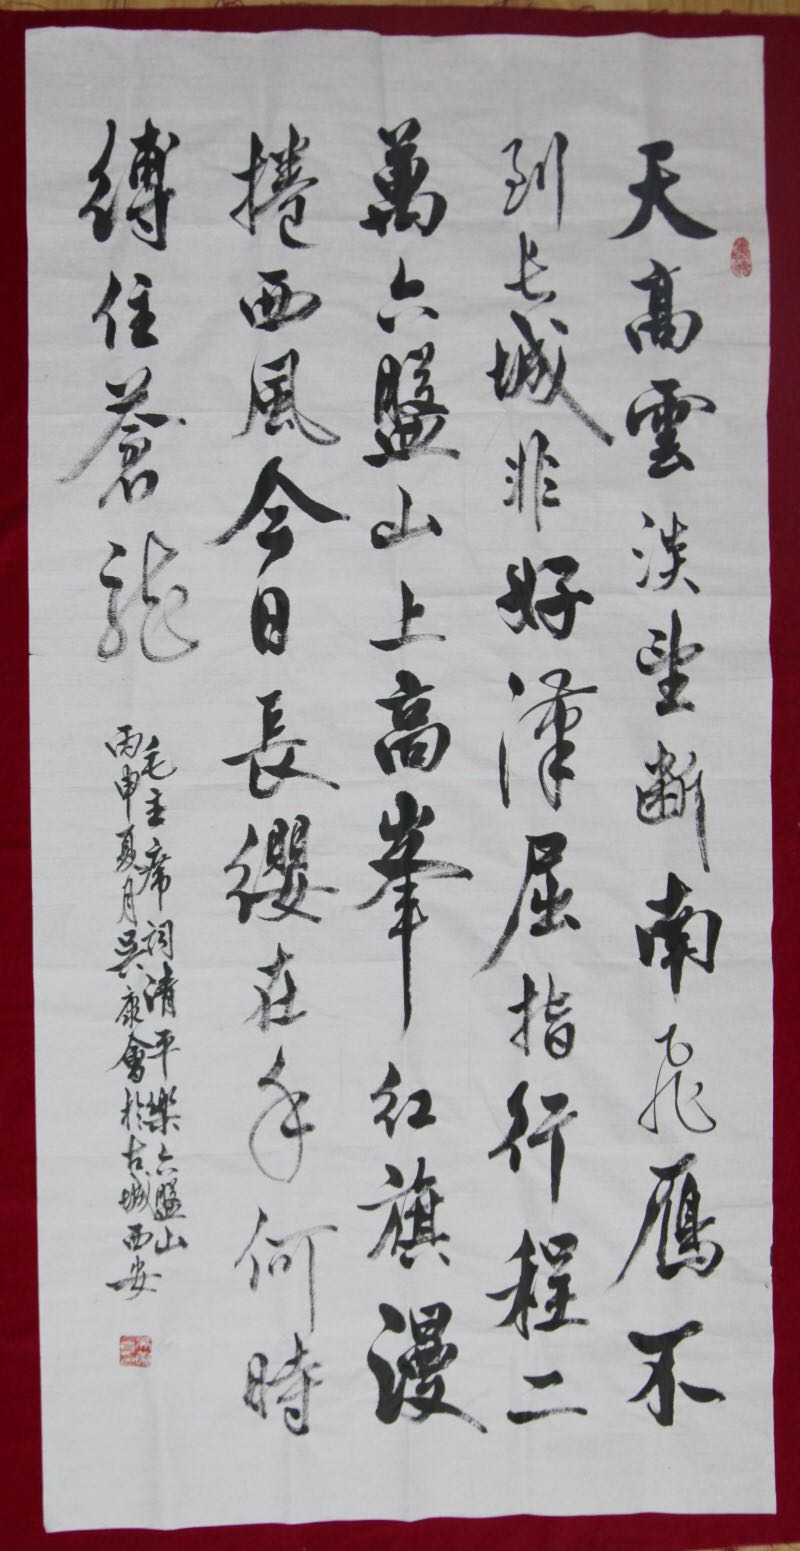 天高雲淡望斷南飛雁不
到长城非好漢屈指行程二
萬六盤山上高峯紅旗漫
捲西風今日長纓在手何時
縛住蒼龍
毛主席词清平樂六盤山
丙申夏月吳康會於古城西安